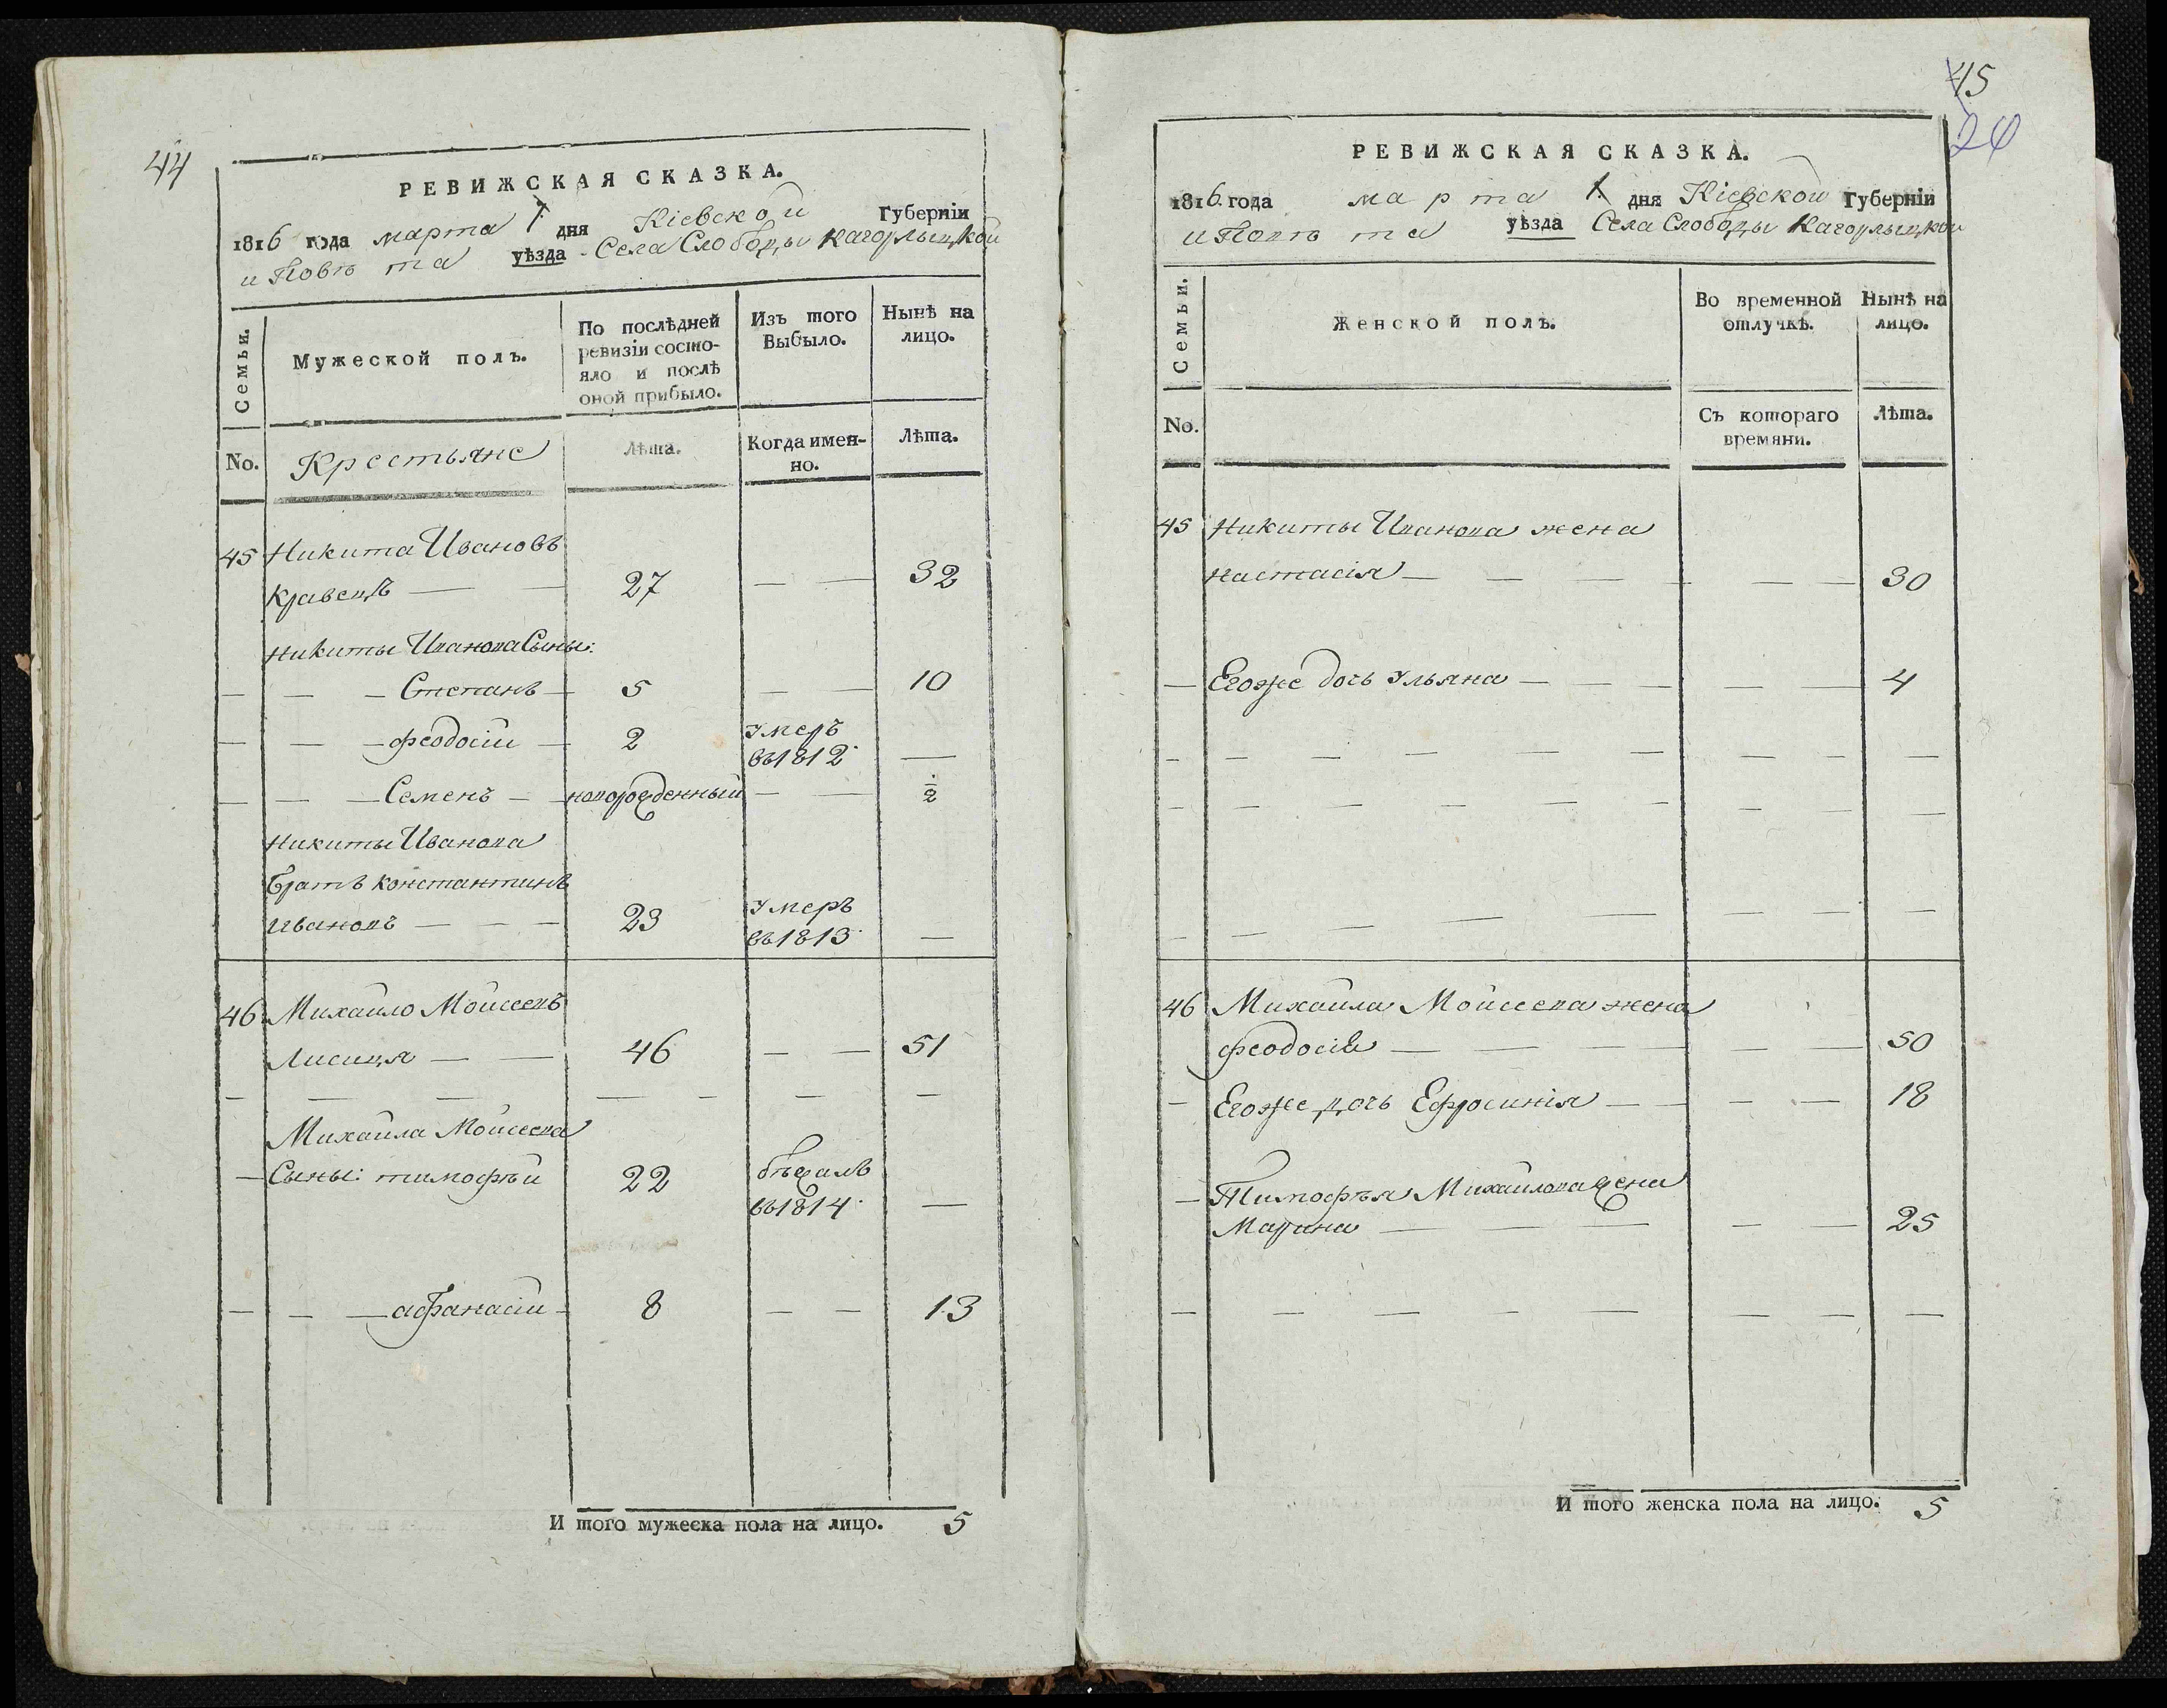 44
РЕВИЖСКАЯ СКАЗКА.
1816 года марта 1 дня Кіевской Губерніи
и Повѣта уѣзда Села Слободы Кагорлыцкой
Семьи.
Мужеской полъ.
По послѣдней
ревизіи состо-
яло и послѣ
оной прибыло.
Изъ того
Выбыло.
Нынѣ на
лицо.
No.
Крестьяне
Лѣта.
Когда имен-
но.
Лѣта.
45 Никита Ивановъ
Кравецъ — — 27 — — 32
Никиты Иванова Сыны:
— — — Степанъ — 5 — — 10
— — — феодосій — 2 Умеръ
въ 1812. —
— — — Семенъ — новорожденный — — ½
Никиты Иванова
братъ константинъ
ивановъ — — — 23 Умеръ
въ 1813. —
46 Михайло Мойсеевъ
Лисиця — — 46 — — 51
— — — — — — — —
Михайла Мойсеева
— Сыны: тимофѣй 22 бѣжалъ
въ 1814. —
— — — афанасій — 8 — — 13
И того мужеска пола на лицо. 5
45
24
РЕВИЖСКАЯ СКАЗКА.
1816. года марта 1. дня Кіевской Губерніи
и Повѣта уѣзда Села Слободы Кагорлыцкой
Семьи.
Женской полъ.
Во временной
отлучкѣ.
Нынѣ на
лицо.
No.
Съ котораго
времяни.
Лѣта.
45 Никиты Иванова жена
настасія — — — — — — 30
— Егоже дочь Ульяна — — — — — 4
— — — — — — — — —
— — — — — — — — —
— — — — — — — —
46 Михайла Мойсеева жена
феодосія — — — — — — 50
— Егоже дочь Ефросинія — — — — 18
— Тимофѣя Михайлова жена
Марина — — — — — 25
— — — — — — — —
И того женска пола на лицо. 5